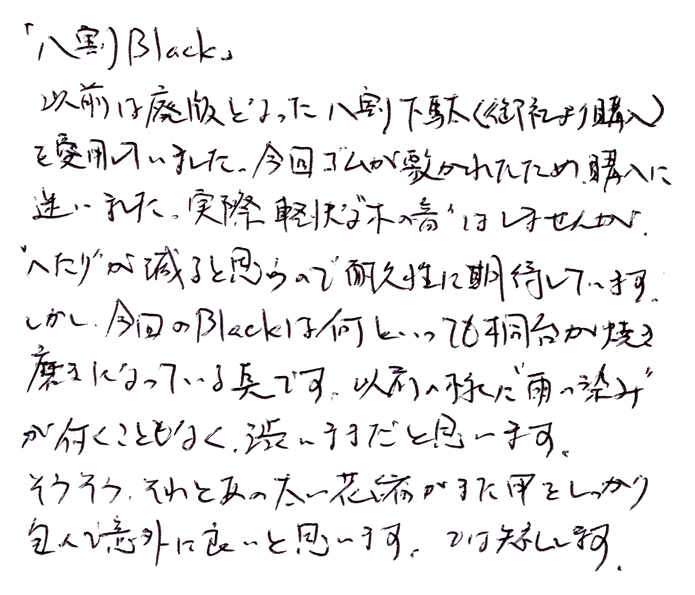 「八割Black」
以前は廃版となった八割下駄(御社より購入)
を愛用していました。今回ゴムが敷かれたため購入に
迷いました。実際軽快な"木の音"はしませんが、
"へたり"が減ると思うので耐久性に期待しています。
しかし、今回のBlackは何といっても桐台が焼き
磨きになっている点です。以前の様な"雨の染み"
が付くこともなく、渋いままだと思います。
そうそう、それとあの太い花緒がまた甲をしっかり
包んで意外に良いと思います。では失礼します。